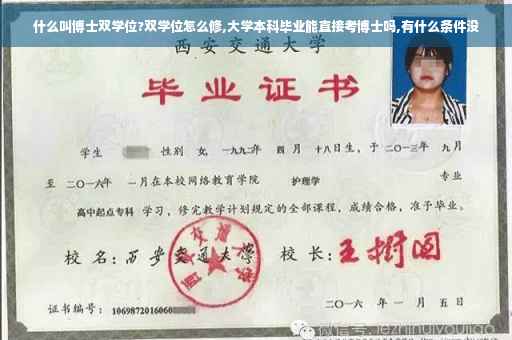 什么叫博士双学位?双学位怎么修,大学本科毕业能直接考博士吗,有什么条件没
西安交通大学
毕业证书
学生 性别 女, 一九九二年 四月 十八日生, 于二〇一三年 九月
至 二〇一六年 一月在本校网络教育学院 护理学 专业
高中起点专科 学习, 修完教学计划规定的全部课程, 成绩合格, 准予毕业。
校名: 西安交通大学 校长: 王树国
西安交通大学
证书编号: 1069872016060
二〇一六年 一月 五日
微信号: jiezhinuiyoujiao